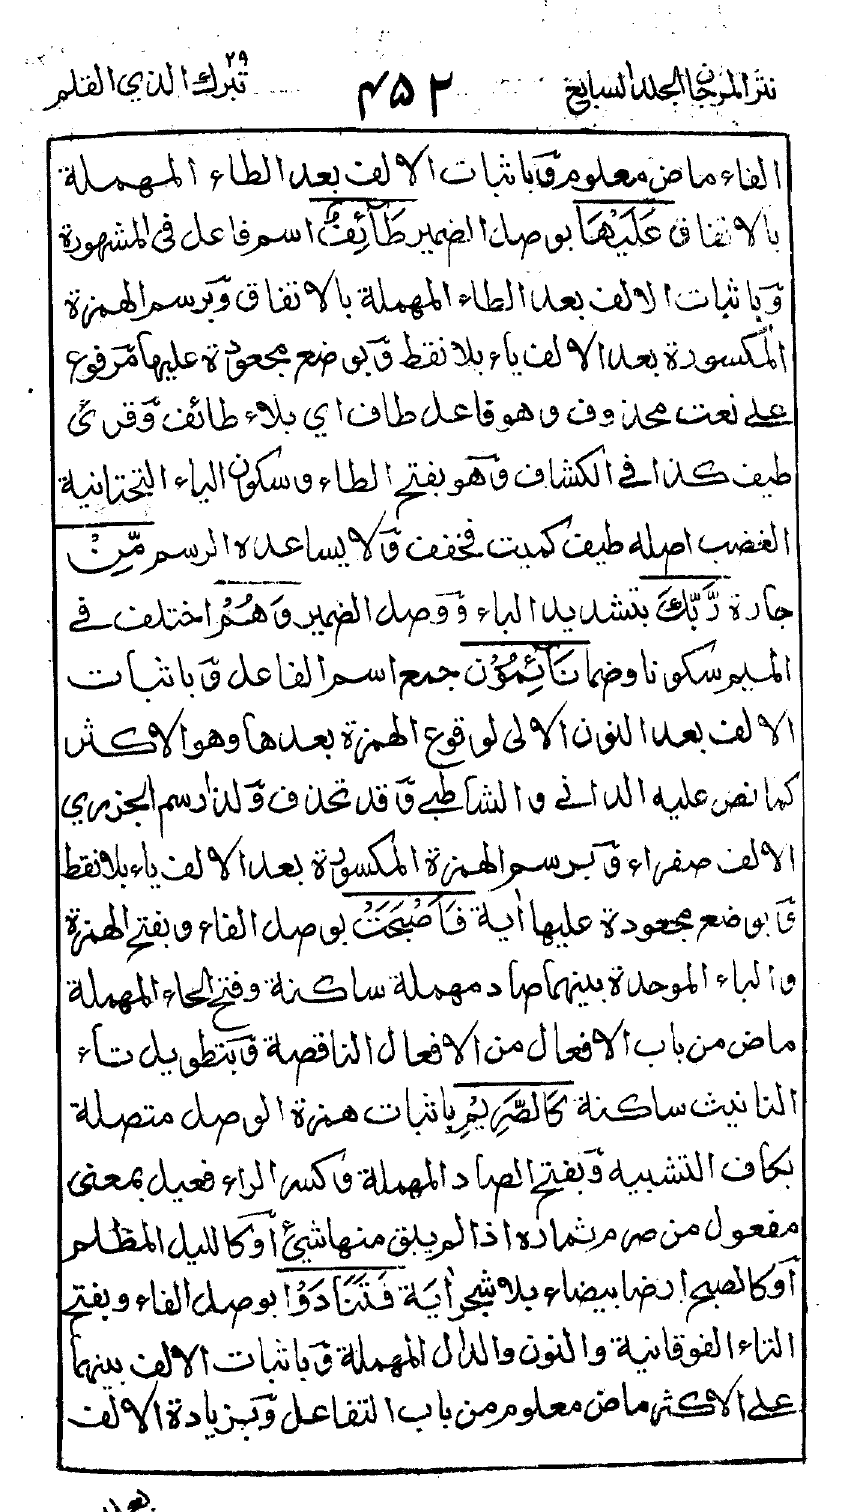 نثر المرجان الجلد السابع ۴۵۲ تبرك الذي ۲۹ القلم
الفاء ماض معلوم وَبا ثبات الالف بعد الطاء المهملة
بالاتفاق عَلَيْهَا بوصل الضمير طَآئِفٌ اسم فاعل فى المشهورة
وَبا ثبات الالف بعد الطاء المهملة بالاتفاق وَبرسم الهمزة
المكسورة بعد الالف ياء بلا نقط وَبوضع مجعودة عليها مَرفوع
على نعت محذوف وهو فاعل طاف اي بلاء طائف وَقرئ
طيف كذا في الكشاف وَهو بفتح الطاء وسكون الياء التحتانية
الغضب اصله طيف كميت فخفف وَلا يساعده الرسم مِّنْ
جارة رَّبِّكَ بتشديد الباء وَوصل الضمير وَهُمْ اختلف في
الميم سكونا وضما نَآئِمُوْنَ جمع اسم الفاعل وَبا ثبات
الالف بعد النون الاولى لوقوع الهمزة بعدها وهو الاكثر
كما نص عليه الداني و الشاطبي وَقد تحذف وَلذا رسم الجزري
الالف صفراء وَبرسم الهمزة المكسورة بعد الالف ياء بلا نقط
وَبوضع مجعودة عليها اٰية فَاَصْبَحَتْ بوصل الفاء وبفتح الهمزة
والباء الموحدة بينهما صاد مهملة ساكنة وفتح الحاء المهملة
ماض من باب الافعال من الافعال الناقصة وَبتطويل تاء
التانيث ساكنة كَالصَّرِيْمِ با ثبات همزة الوصل متصلة
بكاف التشبيه وَبفتح الصاد المهملة وَكسر الراء فعيل بمعنى
مفعول من صرم ثماره اذا لم يبق منها شيئ اَوكالليل المظلم
اَوكالصبح ارضا بيضاء بلا شجر اٰية فَتَنَادَوْا بوصل الفاء وبفتح
التاء الفوقانية والنون والدال المهملة وَبا ثبات الالف بينهما
على الاكثر ماض معلوم من باب التفاعل وَبزيادة الالف
بعد